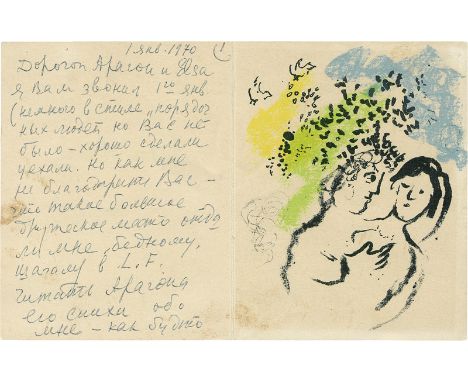 1 янв. 1970 1
Дорогой Арагон и Elsa
я Вам звонил 1го янв
(немного в стиле „порядоч
ных людей, но Вас не
было – хорошо сделали
уехали. Но как мне
не благодарить Вас –
это такое большое
дружеское место отда
ли мне, бедному,
шагалу в L.F.
Читать Арагона
его стихи обо
мне – как будто